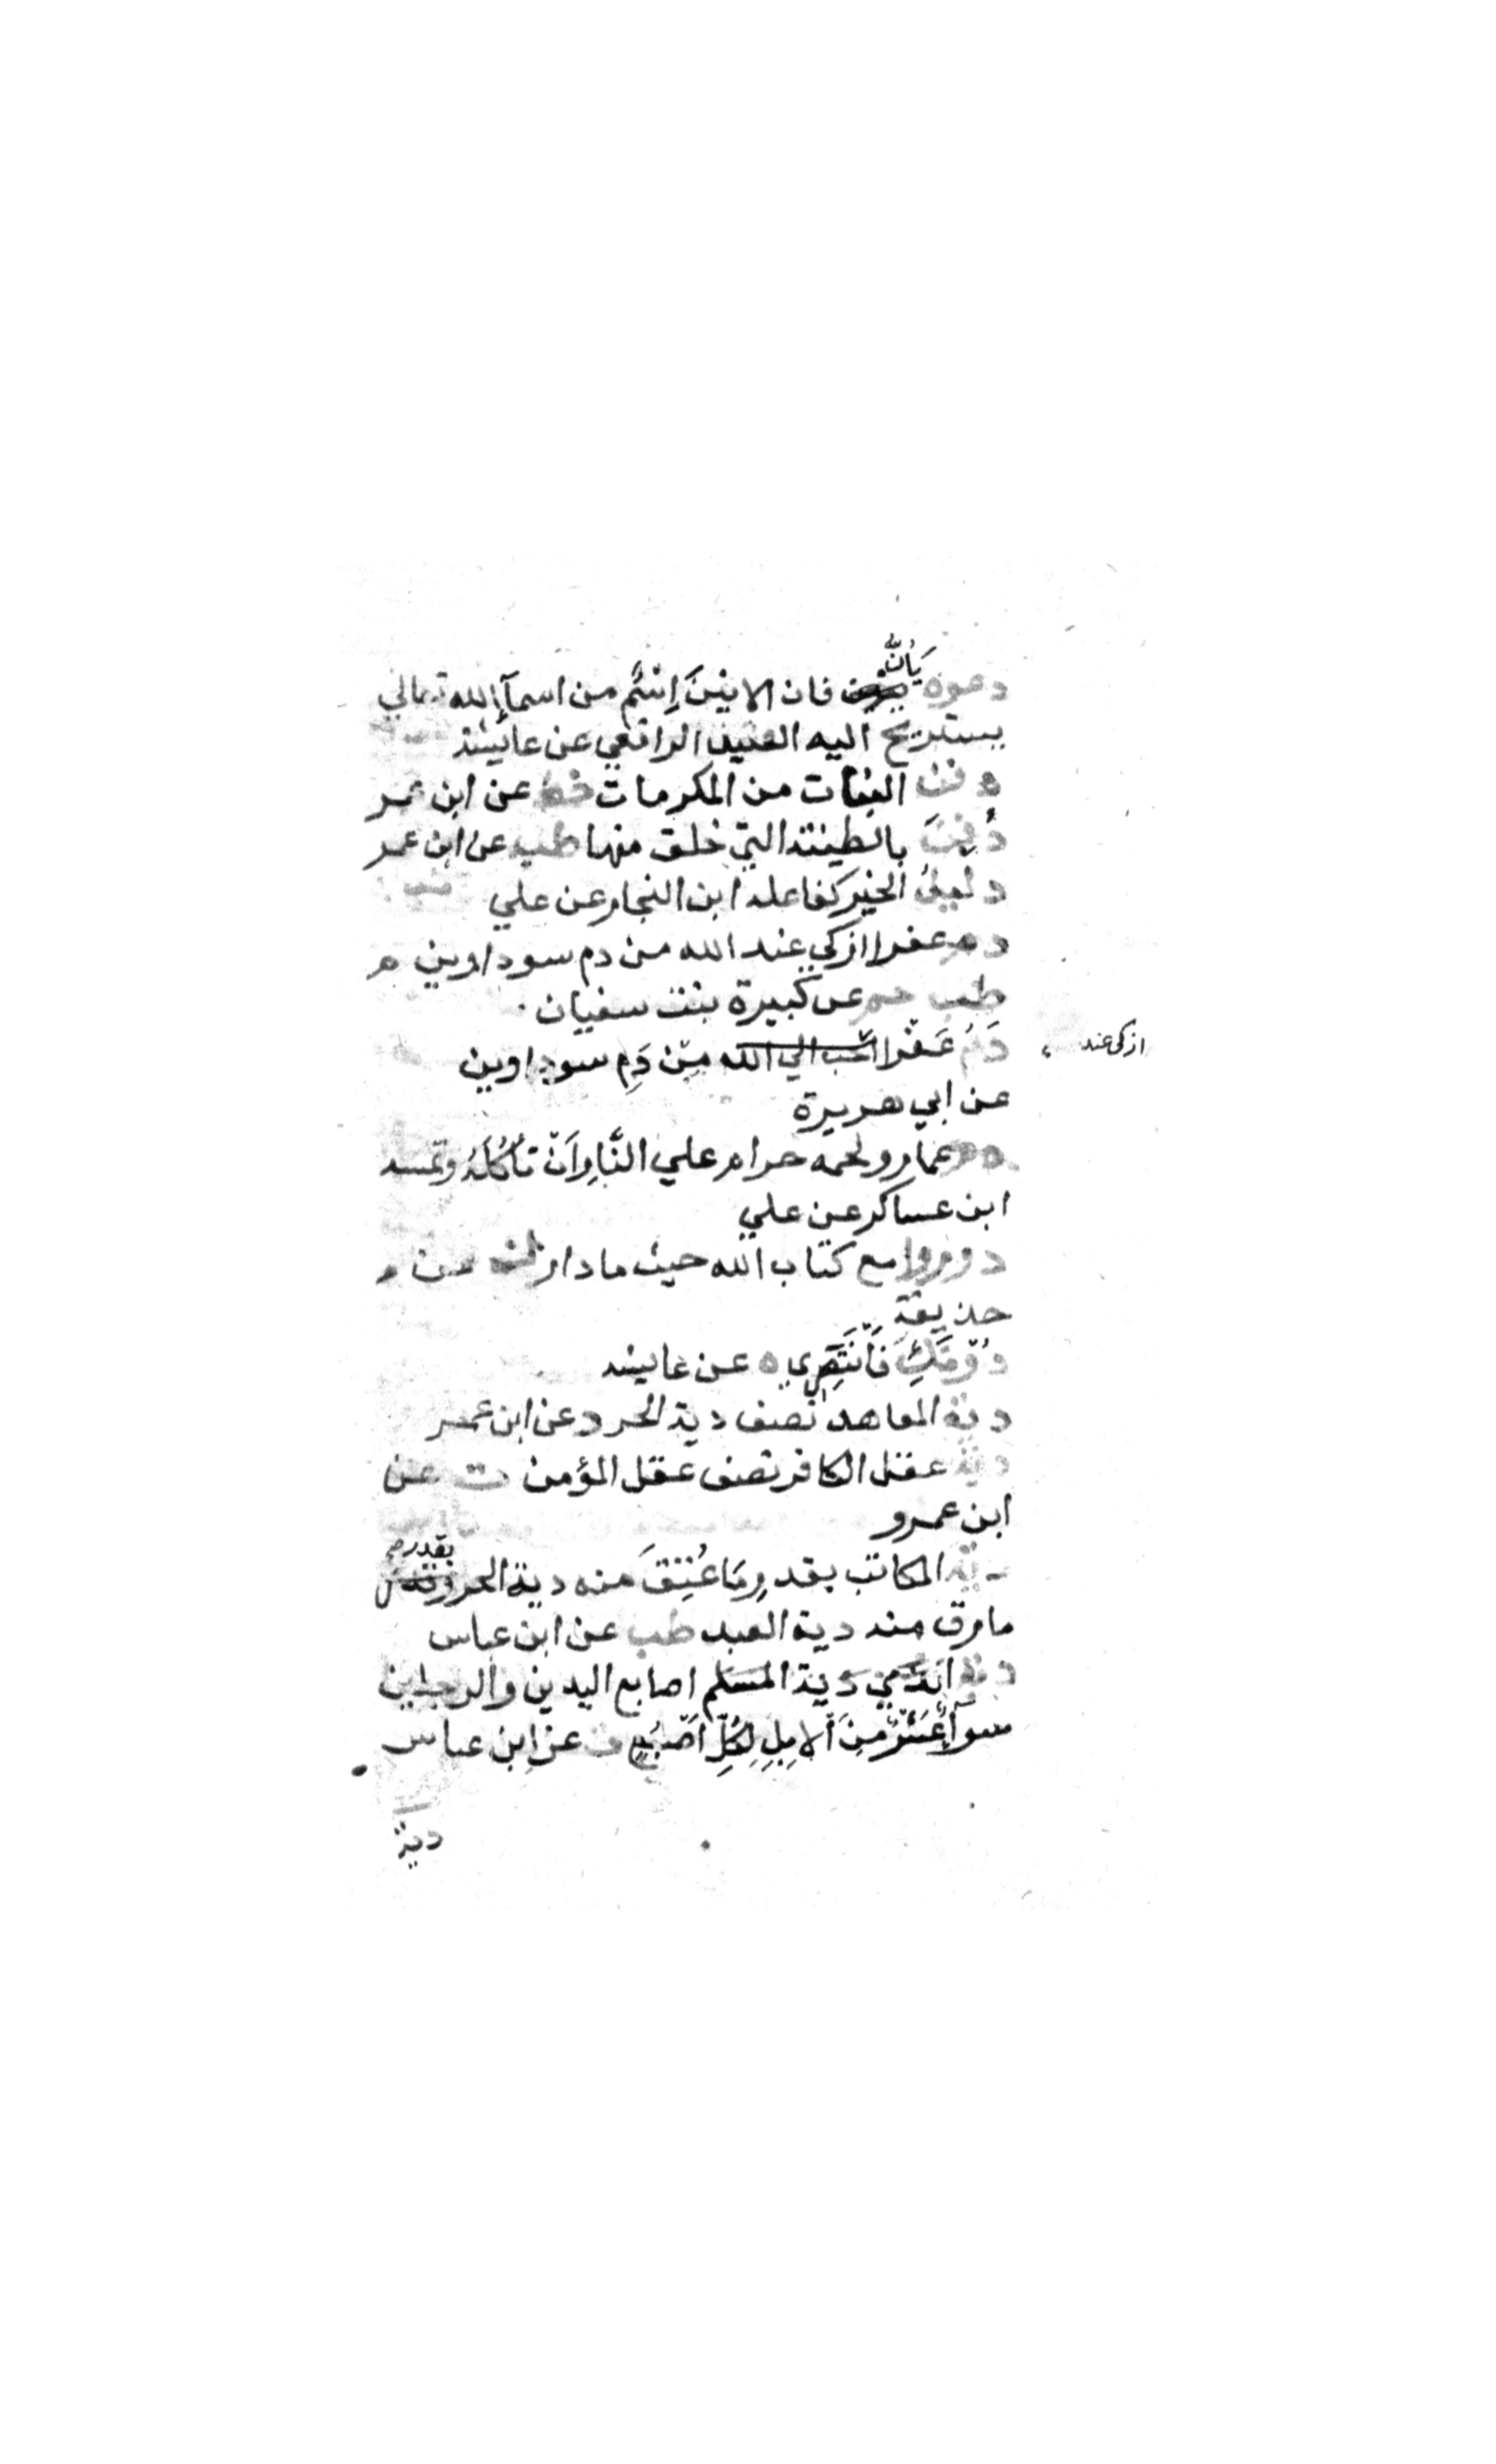 دعوه يَأنُّ فان الانينَ اِسْمٌ من اسمآء الله تعالي
يستريح اليه العليل الرافعي عن عائشة
دفن البنات من المكرمات خط عن ابن عمر
دُفِنَ بالطينة التي خلق منها طب عن ابن عمر
دليل الخير كفاعله ابن النجار عن علي
دم عفرا ازكي عند الله من دم سوداوين
طب عن كبيرة بنت سفيان
دَمُ عَفْرا احب الي الله مِنْ دَمِ سوداوين
ازكى عند
عن ابي هريرة
دم عمار ولحمه حرام علي النَّارِ اَنْ تَأكُلَهُ وتمسه
ابن عساكر عن علي
دوروا مع كتاب الله حيث ما دار عن
حذيفة
دُونَكِ فَانْتَصِرِي ه عن عايشه
دية المعاهد نصف دية الحر د عن ابن عمر
دية عقل الكافر نصف عقل المؤمن ت عن
ابن عمرو
دية المكاتب بقدرِ مَا عُتِقَ منه دية الحر وبقدر
بقدر صح
مارق منه دية العبد طب عن ابن عباس
دية الذمي دية المسلم اصابع اليدين والرجلين
سوآءٌ عَشْرٌ مِنَ الاِبِلِ لِكُلِّ اَصْبُعٍ ت عن ابن عباس
دية